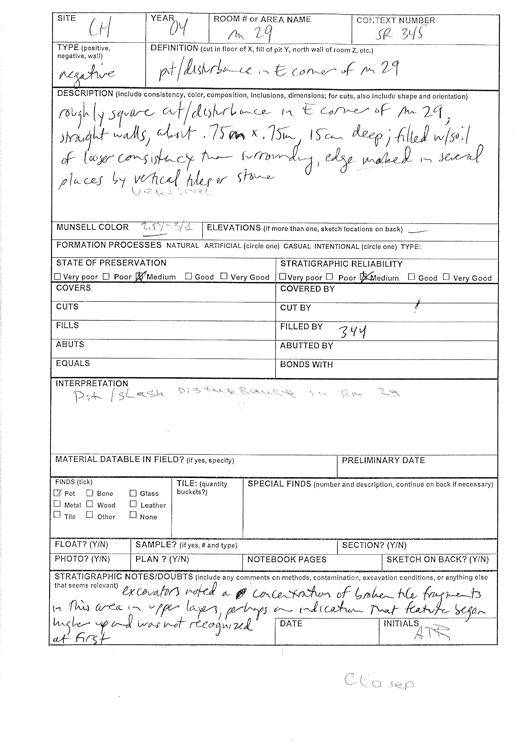 SITE CH YEAR 04 ROOM # or AREA NAME rm 29 CONTEXT NUMBER SR 345
TYPE (positive, negative, wall) negative
DEFINITION (cut in floor of X, fill of pit Y, north wall of room Z, etc.)
pit/disturbance in E corner of rm 29
DESCRIPTION (include consistency, color, composition, inclusions, dimensions; for cuts, also include shape and orientation)
roughly square cut/disturbance in E corner of rm 29,
straight walls, about .75m x .75m, 15cm deep; filled w/soil
of looser consistency than surrounding, edge marked in several
places by vertical tiles or stone
vertical
MUNSELL COLOR 2.5Y-3/2 ELEVATIONS (if more than one, sketch locations on back) —
FORMATION PROCESSES NATURAL ARTIFICIAL (circle one) CASUAL INTENTIONAL (circle one) TYPE:
STATE OF PRESERVATION STRATIGRAPHIC RELIABILITY
☐ Very poor ☐ Poor ☒ Medium ☐ Good ☐ Very Good ☐ Very poor ☐ Poor ☒ Medium ☐ Good ☐ Very Good
COVERS COVERED BY
CUTS CUT BY
FILLS FILLED BY 344
ABUTS ABUTTED BY
EQUALS BONDS WITH
INTERPRETATION
Pit/slash Disturbance in Rm 29
MATERIAL DATABLE IN FIELD? (if yes, specify) PRELIMINARY DATE
FINDS (tick) TILE: (quantity SPECIAL FINDS (number and description, continue on back if necessary)
☑ Pot ☐ Bone ☐ Glass buckets?)
☐ Metal ☐ Wood ☐ Leather
☐ Tile ☐ Other ☐ None
FLOAT? (Y/N) SAMPLE? (if yes, # and type) SECTION? (Y/N)
PHOTO? (Y/N) PLAN ? (Y/N) NOTEBOOK PAGES SKETCH ON BACK? (Y/N)
STRATIGRAPHIC NOTES/DOUBTS (include any comments on methods, contamination, excavation conditions, or anything else
that seems relevant) excavators noted a concentration of broken tile fragments
in this area in upper layers, perhaps an indication that feature began
higher up and was not recognized
at first
DATE INITIALS ATR
Closed